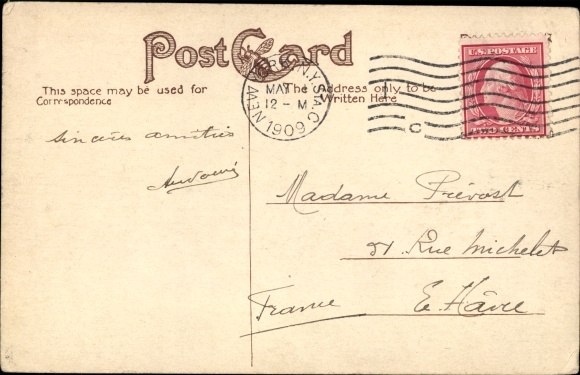 Post Card
This space may be used for
Correspondence
The Address only to be
Written Here
NEW YORK, N.Y. STA. C
MAY
12-M
1909
C
U.S. POSTAGE
TWO CENTS
Sincères amitiés
Madame Prévost
51 Rue Michelet
Le Hâvre
France